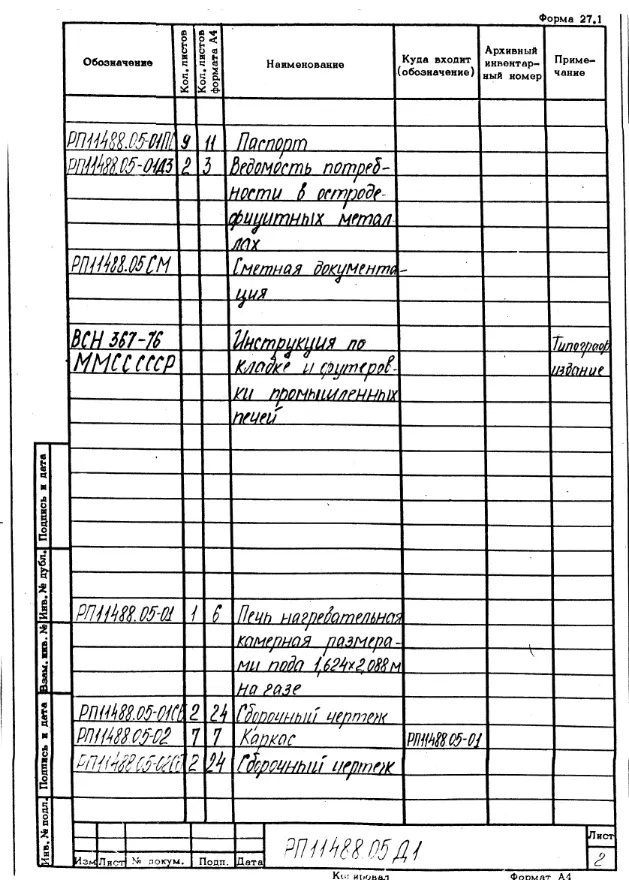 Форма 27.1
Обозначение Кол. листов Кол. листов формата А4 Наименование Куда входит (обозначение) Архивный инвентарный номер Примечание
РП11488.05-01ПС 9 11 Паспорт
РП11488.05-01Д3 2 3 Ведомость потреб-
ности в остроде-
фицитных метал-
лах
РП11488.05СМ Сметная документа-
ция
ВСН 367-76 Инструкция по Типограф.
ММСС СССР кладке и футеров- издание
ки промышленных
печей
РП11488.05-01 1 6 Печь нагревательная
камерная размера-
ми пода 1,624×2,088м
на газе
РП11488.05-01СБ 2 24 Сборочный чертеж
РП11488.05-02 7 7 Каркас РП11488.05-01
РП11488.05-02СБ 2 24 Сборочный чертеж
Инв. № подл. Подпись и дата Взам. инв. № Инв. № дубл. Подпись и дата
РП11488.05Д1
Лист
2
Изм Лист № докум. Подп. Дата
Копировал Формат А4